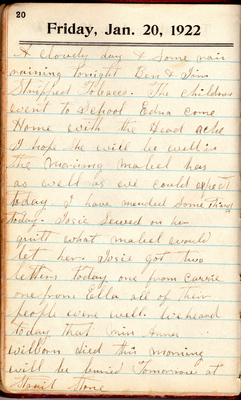 20
Friday, Jan. 20, 1922
A clowdy day & some rain
raining tonight Ben & Jim
Stripped Tobacco. The children
went to School Edna come
Home with the Head ache
I hope she will be well in
the morning mabel has
as well as we could expect
today I have mended some things
today. Josie Sewed on her
quilt what mabel would
let her. Josie got two
letters today one from Carrie
one from Ella all of their
people were well. We heard
today that mrs
died this morning
will be buried Tomorrow at